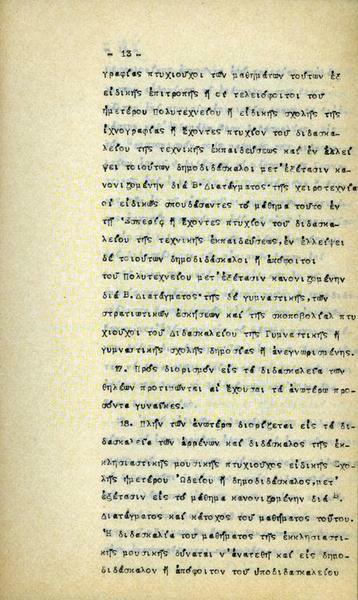 - 13 -
γραφίας πτυχιοῦχοι τῶν μαθημάτων τούτων ἐξ
εἰδικῆς ἐπιτροπῆς ἤ οἱ τελειόφοιτοι τοῦ
ἡμετέρου Πολυτεχνείου ἤ εἰδικῆς σχολῆς τῆς
ἰχνογραφίας ἤ ἔχοντες πτυχίον τοῦ διδασκα-
λείου τῆς τεχνικῆς ἐκπαιδεύσεως καί ἐν ἐλλεί
ψει τοιούτων δημοδιδάσκαλοι μετ'ἐξέτασιν κα-
νονιζομένην διά Β·Διατάγματος·τῆς χειροτεχνίας
οἱ εἰδικῶς σπουδάσαντες τό μάθημα τοῦτο ἐν
τῇ Ἑσπερίᾳ ἤ ἔχοντες πτυχίον τοῦ διδασκα-
λείου τῆς τεχνικῆς ἐκπαιδεύσεως,ἐν ἐλλείψει
δέ τοιούτων δημοδιδάσκαλοι ἤ ἀπόφοιτοι
τοῦ Πολυτεχνείου μετ'ἐξέτασιν κανονιζομένην
διά Β.Διατάγματος·τῆς δέ γυμναστικῆς,τῶν
στρατιωτικῶν ἀσκήσεων καί τῆς σκοποβολίας πτυ
χιοῦχοι τοῦ Διδασκαλείου τῆς Γυμναστικῆς ἤ
γυμναστικῆς σχολῆς δημοσίας ἤ ἀνεγνωρισμένης.
17. Πρός διορισμόν εἰς τά διδασκαλεῖα τῶν
θηλέων προτιμῶνται αἱ ἔχουσαι τά ἀνωτέρω προ-
σόντα γυναῖκες.
18. Πλήν τῶν ἀνωτέρω διορίζεται εἰς τά δι-
δασκαλεῖα τῶν ἀρρένων καί διδάσκαλος τῆς ἐκ-
κλησιαστικῆς μουσικῆς πτυχιοῦχος εἰδικῆς Σχο-
λῆς ἡμετέρου Ὠδείου ἤ δημοδιδάσκαλος,μετ'
ἐξέτασιν εἰς τό μάθημα κανονιζομένην διά Β.
Διατάγματος καί κάτοχος τοῦ μαθήματος τούτου.
Ἡ διδασκαλία τοῦ μαθήματος τῆς ἐκκλησιαστι-
κῆς μουσικῆς δύναται ν'ἀνατεθῇ καί εἰς δημο-
διδάσκαλον ἤ ἀπόφοιτον τοῦ ὑποδιδασκαλείου